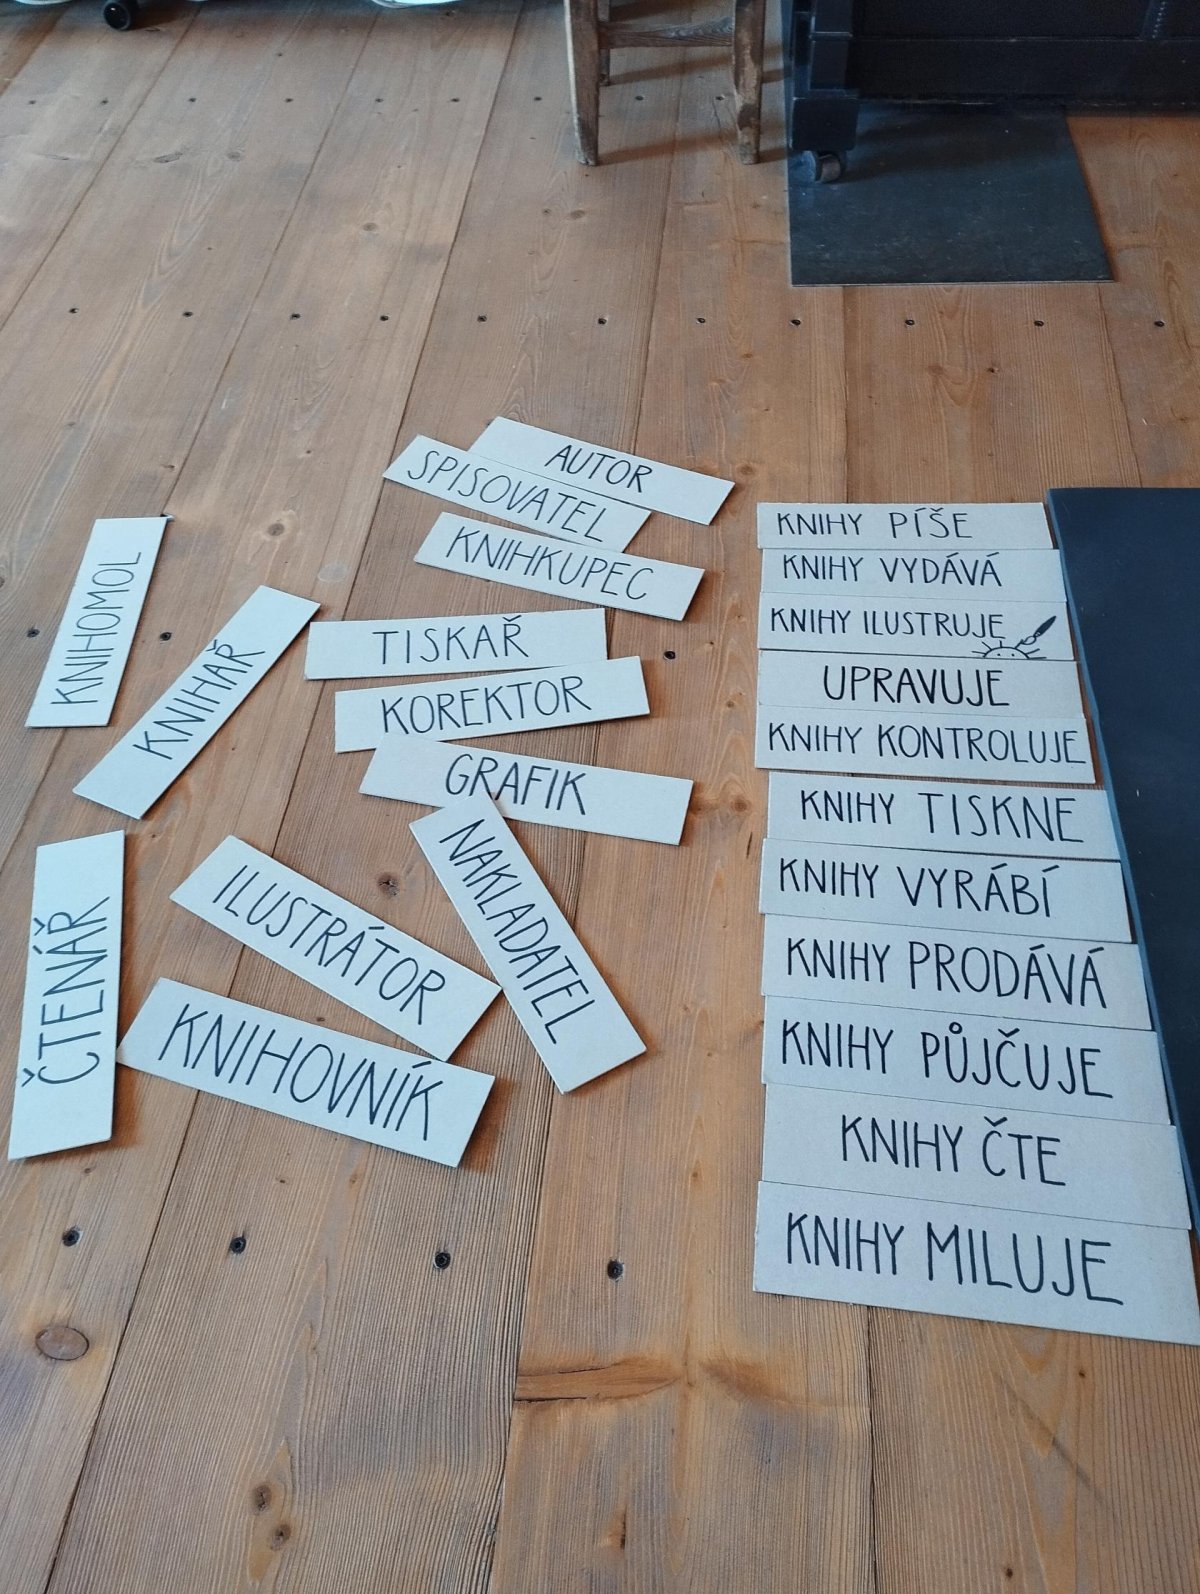 AUTOR
SPISOVATEL
KNIHKUPEC
KNIHOMOL
KNIHAŘ
TISKAŘ
KOREKTOR
GRAFIK
NAKLADATEL
ILUSTRÁTOR
ČTENÁŘ
KNIHOVNÍK
KNIHY PÍŠE
KNIHY VYDÁVÁ
KNIHY ILUSTRUJE
UPRAVUJE
KNIHY KONTROLUJE
KNIHY TISKNE
KNIHY VYRÁBÍ
KNIHY PRODÁVÁ
KNIHY PŮJČUJE
KNIHY ČTE
KNIHY MILUJE